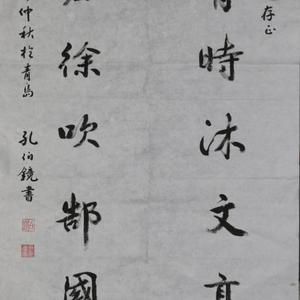 存正
時沐文
徐吹郜國
仲秋於青島 孔伯鏡書